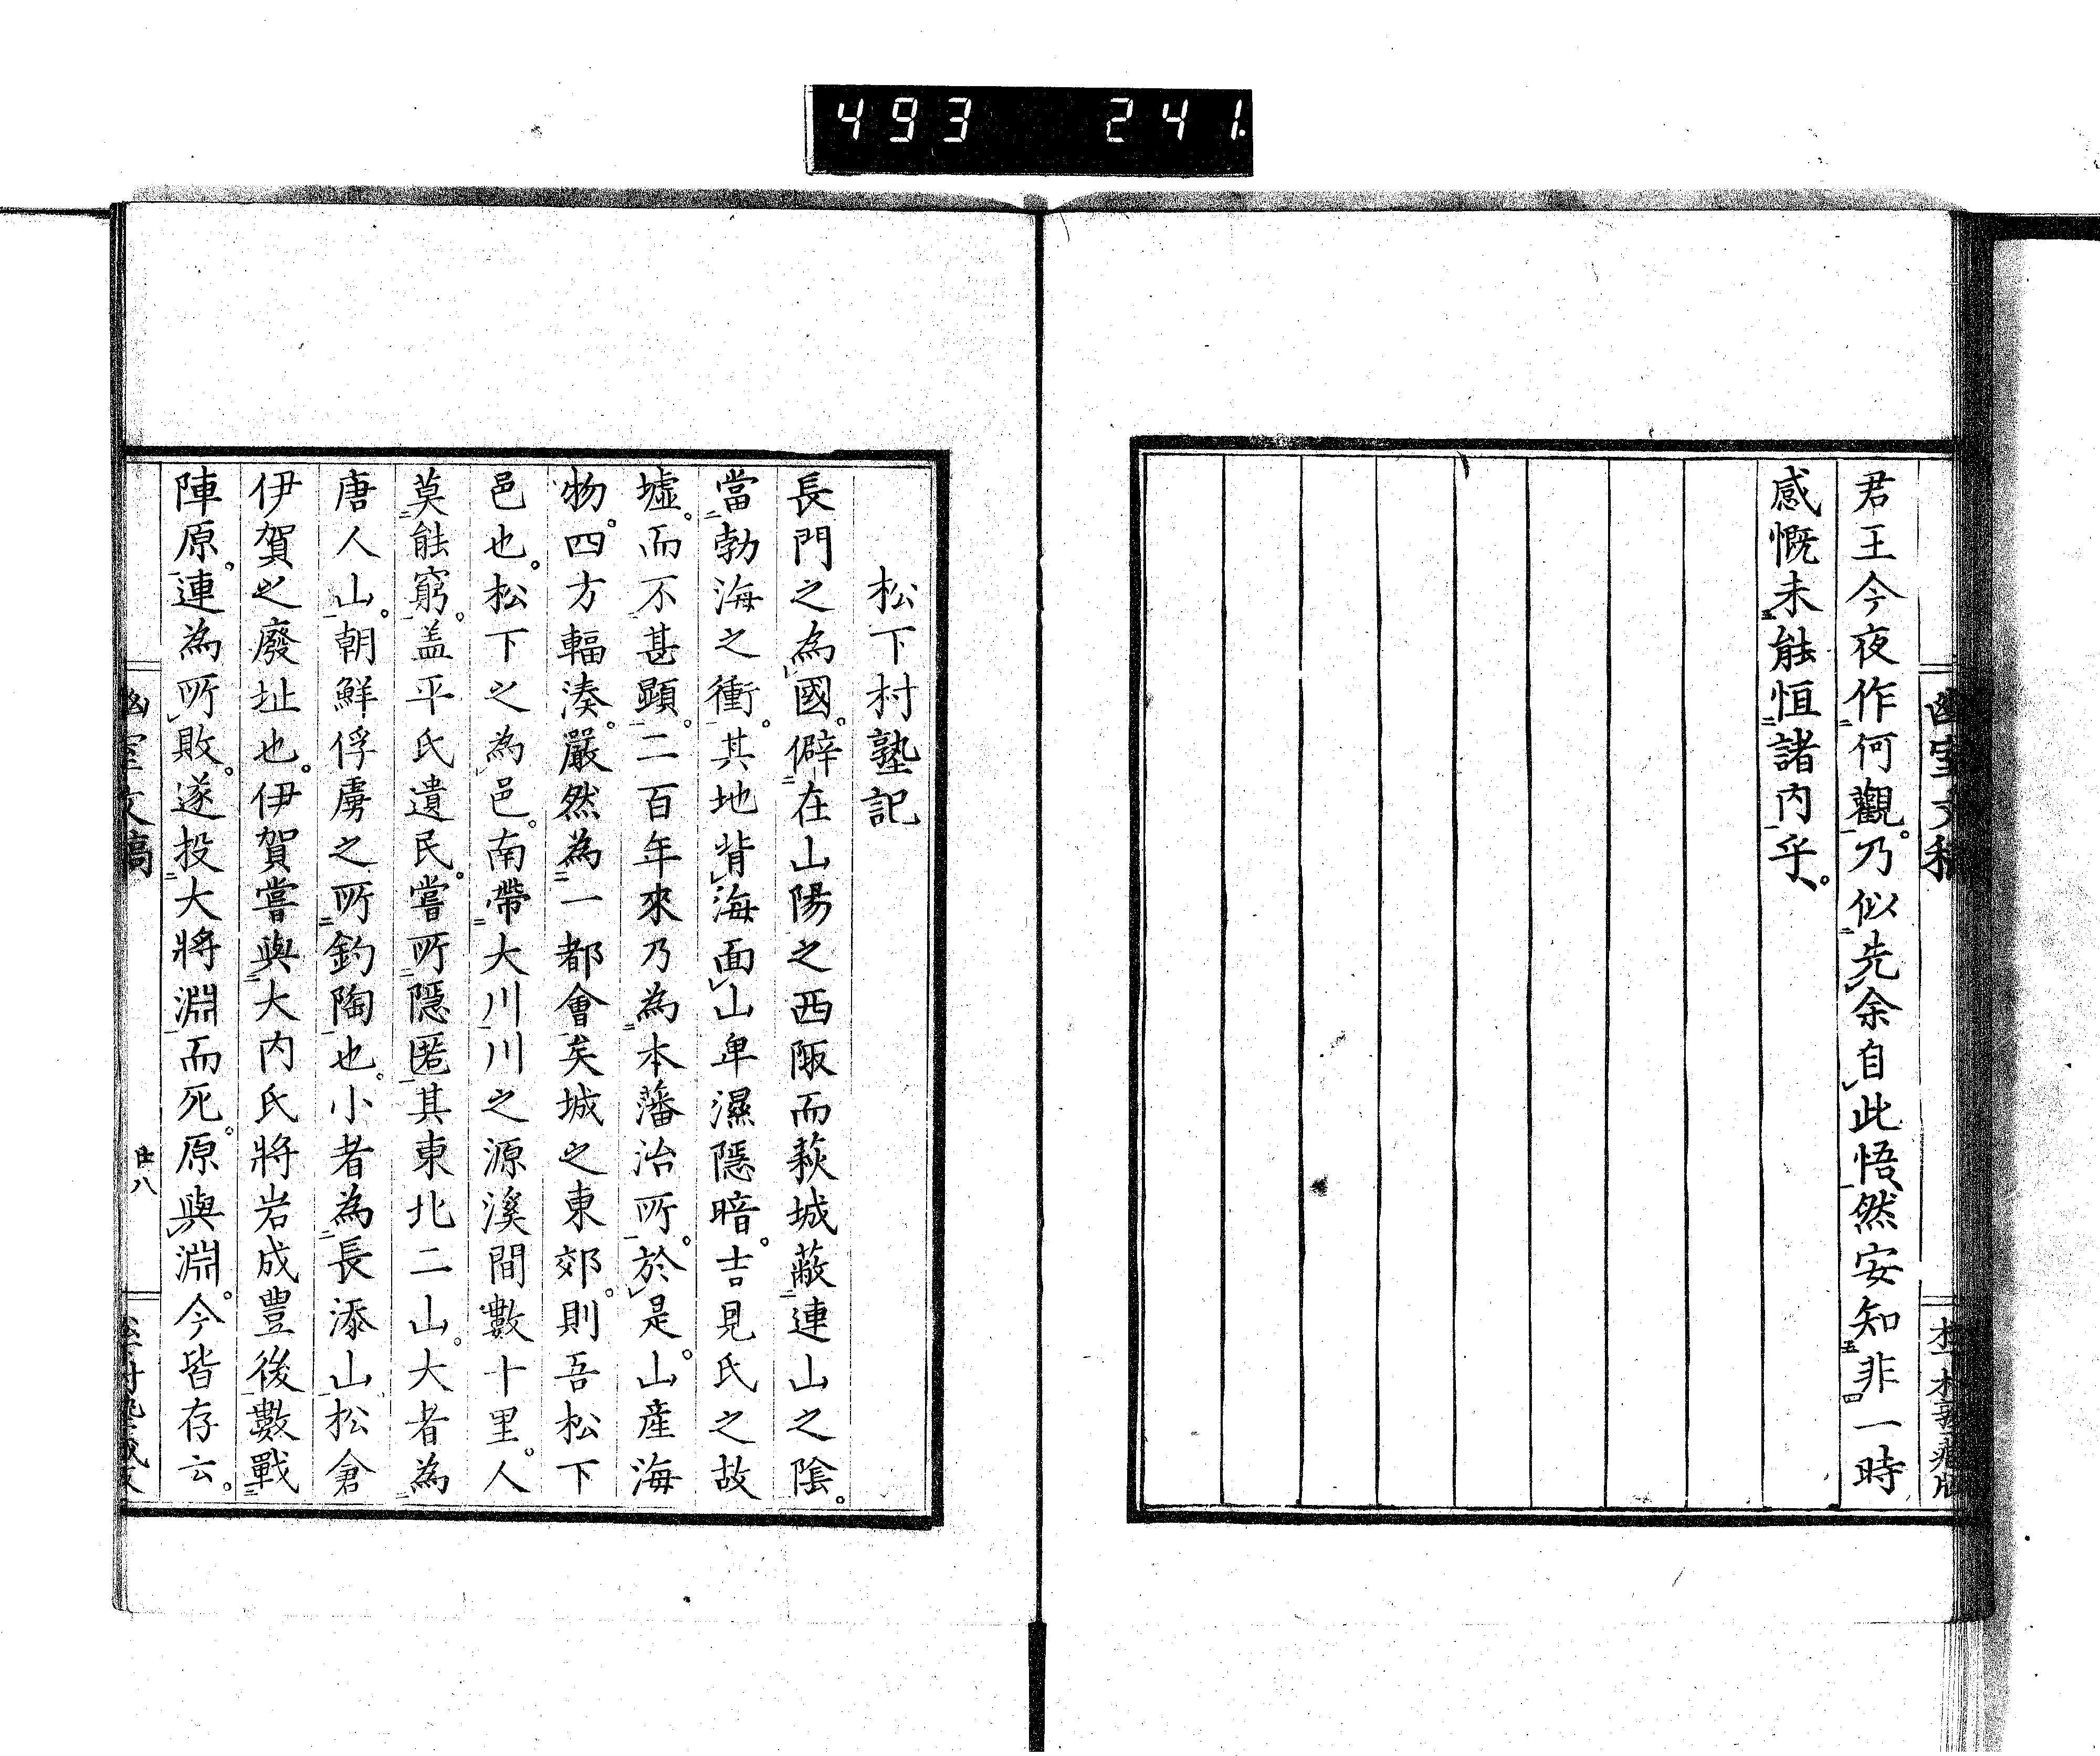 493 241.
幽室文稿
松下村塾蔵版
君王今夜作何觀。乃似先余自此悟然安知非一時
感慨未能恒諸内乎。
松下村塾記
長門之為國。僻在山陽之西陬而萩城蔽連山之陰。
當勃海之衝。其地背海面山卑濕隱暗。吉見氏之故
墟。而不甚顯。二百年來乃為本藩治所。於是。山產海
物。四方輻湊。嚴然為一都會矣城之東郊。則吾松下
邑也。松下之為邑。南帶大川川之源溪間數十里。人
莫能窮。盖平氏遺民。嘗所隱匿其東北二山。大者為
唐人山。朝鮮俘虜之所釣陶也。小者為長添山松倉
伊賀之廢址也。伊賀嘗與大内氏將岩成豊後數戰
陣原。連為所敗。遂投大將淵而死。原與淵。今皆存云。
幽室文稿
廿八